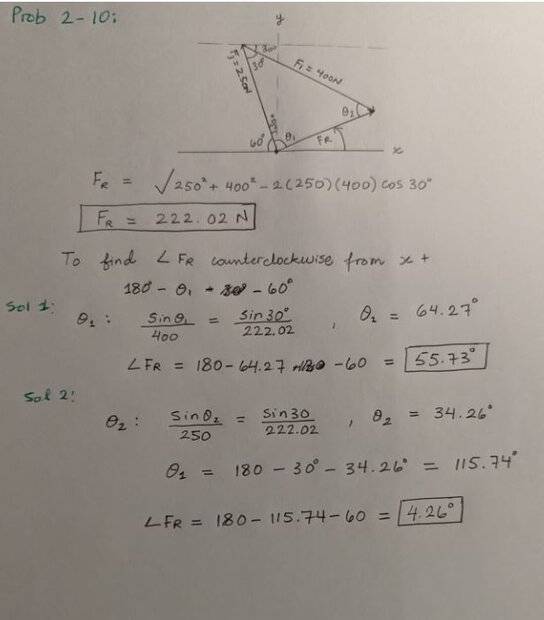 Prob 2-10:
y
30°
F₂ = 250N
F₁ = 400N
θ₂
60°
θ₁
FR
x
FR = √250² + 400² - 2(250)(400) cos 30°
FR = 222.02 N
To find ∠ FR counterclockwise from x +
180 - θ₁ - 60°
Sol 1:
θ₁ : Sinθ₁/400 = Sin30°/222.02 , θ₁ = 64.27°
∠FR = 180 - 64.27 - 60 = 55.73°
Sol 2:
θ₂ : Sinθ₂/250 = Sin30/222.02 , θ₂ = 34.26°
θ₁ = 180 - 30° - 34.26° = 115.74°
∠FR = 180 - 115.74 - 60 = 4.26°